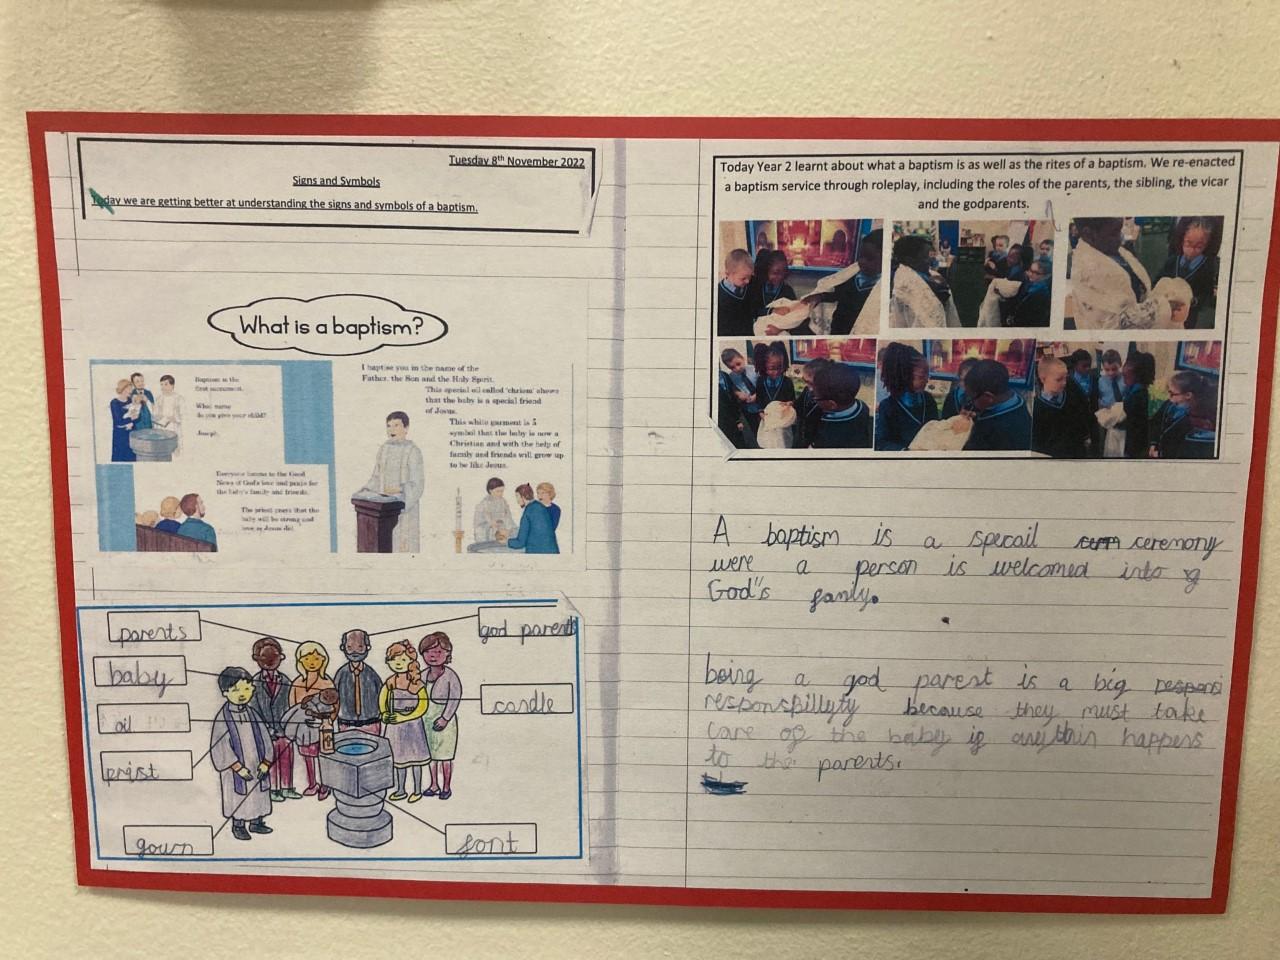 Tuesday 8th November 2022
Signs and Symbols
Today we are getting better at understanding the signs and symbols of a baptism.
What is a baptism?
Baptism is the
first sacrament.
What name
do you give your child?
Joseph.
I baptise you in the name of the
Father, the Son and the Holy Spirit.
This special oil called 'chrism' shows
that the baby is a special friend
of Jesus.
This white garment is a
symbol that the baby is now a
Christian and with the help of
family and friends will grow up
to be like Jesus.
Everyone listens to the Good
News of God's love and prays for
the baby's family and friends.
The priest prays that the
baby will be strong and
love as Jesus did.
parents
god parents
baby
candle
oil
prist
gown
font
Today Year 2 learnt about what a baptism is as well as the rites of a baptism. We re-enacted
a baptism service through roleplay, including the roles of the parents, the sibling, the vicar
and the godparents.
A baptism is a specail ceremony
were a person is welcomed into
God"s famly.
being a god parent is a big
responspillyty because they must take
care of the baby if anythin happens
to the parents.